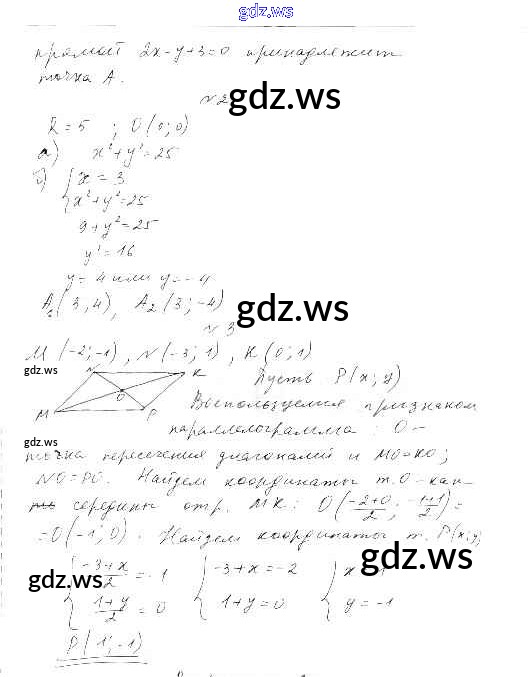 gdz.ws
прямой 2x-y+3=0 принадлежит
точка A.
№2 gdz.ws
R=5 ; O(0;0)
а) x²+y²=25
б) { x = 3
x²+y²=25
9+y²=25
y²=16
y=4 или y=-4
A₁(3,4), A₂(3;-4) gdz.ws
№3
M(-2;-1), N(-3;1), K(0;1)
gdz.ws N K Пусть P(x;y)
O
M P Воспользуемся признаком
параллелограмма : O-
gdz.ws
точка пересечения диагоналей и MO=KO;
NO=PO. Найдем координаты т.O-как
середины отр. MK: O(-2+0/2; -1+1/2)=
=O(-1;0). Найдем координаты т. P(x;y)
gdz.ws
{ -3+x/2 = -1 { -3+x=-2 { x 1
gdz.ws
1+y/2 = 0 1+y=0 y=-1
P(1;-1)